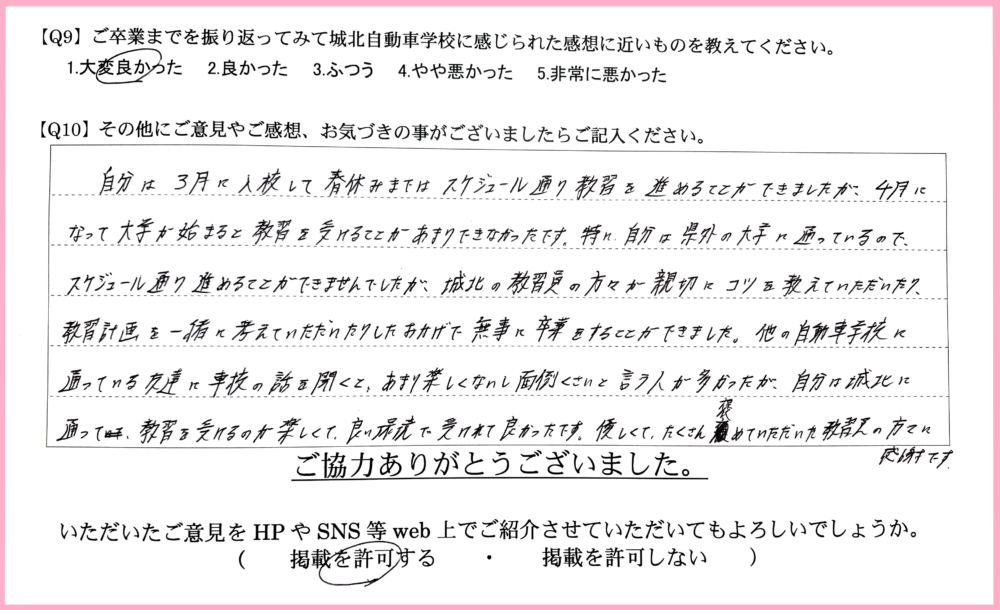 【Q9】ご卒業までを振り返ってみて城北自動車学校に感じられた感想に近いものを教えてください。
1.大変良かった　2.良かった　3.ふつう　4.やや悪かった　5.非常に悪かった
【Q10】その他にご意見やご感想、お気づきの事がございましたらご記入ください。
自分は3月に入校して春休みまではスケジュール通り教習を進めることができましたが、4月に
なって大学が始まると教習を受けることがあまりできなかったです。特に自分は県外の大学に通っているので、
スケジュール通り進めることができませんでしたが、城北の教習員の方々が親切にコツを教えていただいたり、
教習計画を一緒に考えていただいたりしたおかげで無事に卒業をすることができました。他の自動車学校に
通っている友達に車校の話を聞くと、あまり楽しくないし面倒くさいと言う人が多かったが、自分は城北に
通って、教習を受けるのが楽しくて、良い環境で受けれて良かったです。優しくて、たくさん褒めていただいた教習員の方々に
感謝です。
ご協力ありがとうございました。
いただいたご意見をHPやSNS等web上でご紹介させていただいてもよろしいでしょうか。
(　掲載を許可する　・　掲載を許可しない　)